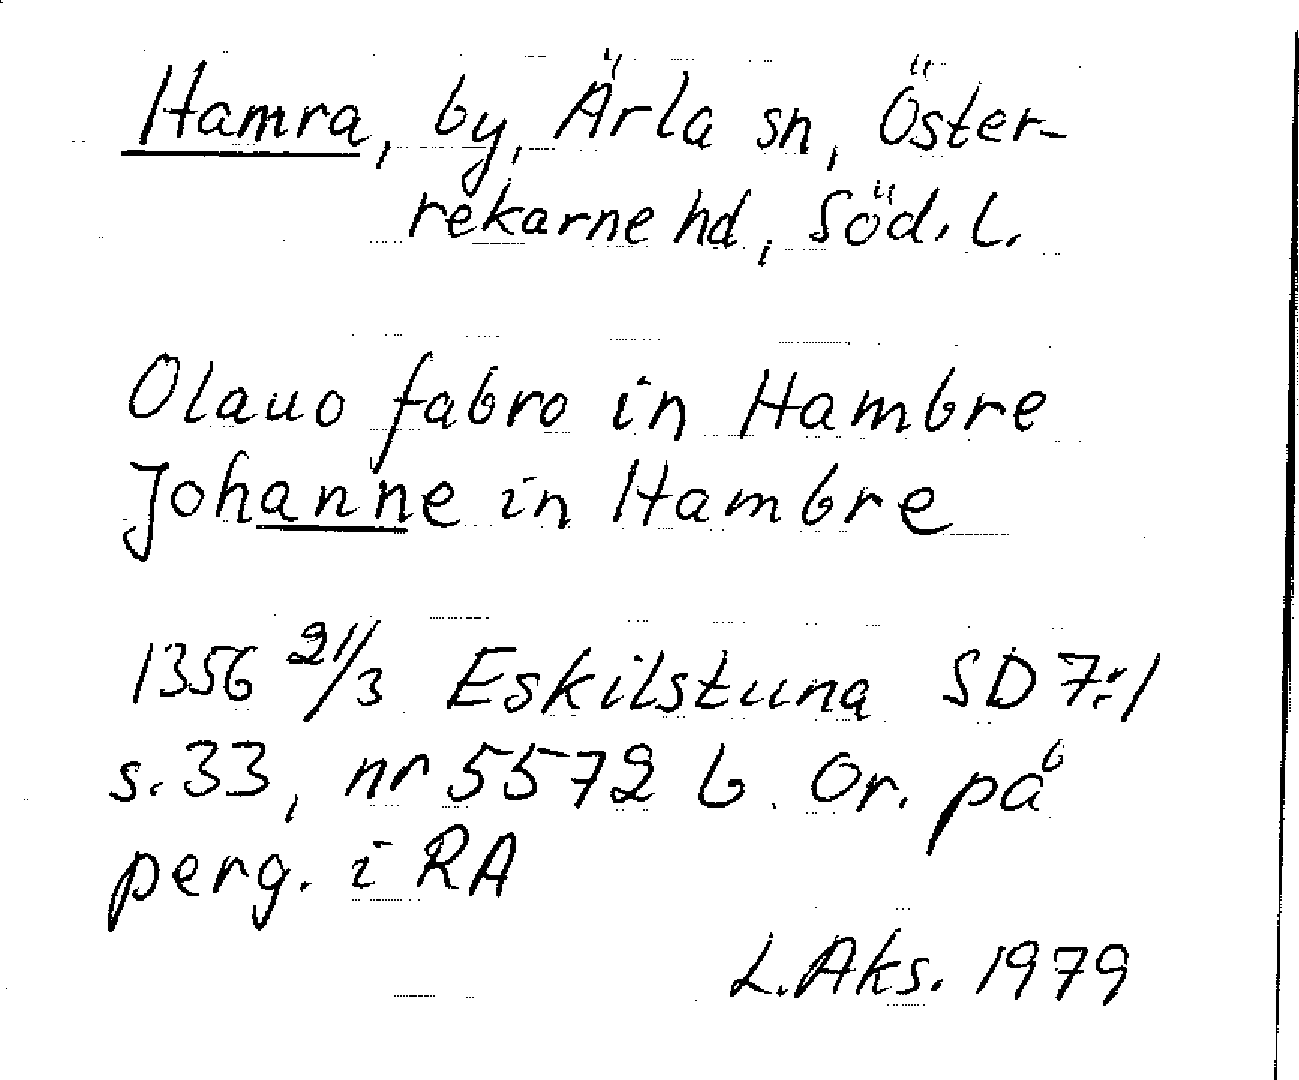 Hamra, by, Ärla sn, Öster-
rekarne hd, Söd. L.
Olauo fabro in Hambre
Johanne in Hambre
1356 21/3 Eskilstuna SD 7:1
s. 33, nr 5572 b. Or. på
perg. i RA
L. Aks. 1979